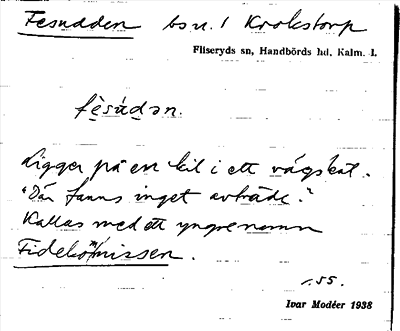 Fesudden bsn. i Krokstorp
Fliseryds sn, Handbörds hd, Kalm. l.
fè̤súdən.
Ligger på en kil i ett vägskal.
"Där fanns inget avträde."
Kallas med ett yngre namn
Fidekomnissen.
155.
Ivar Modéer 1938